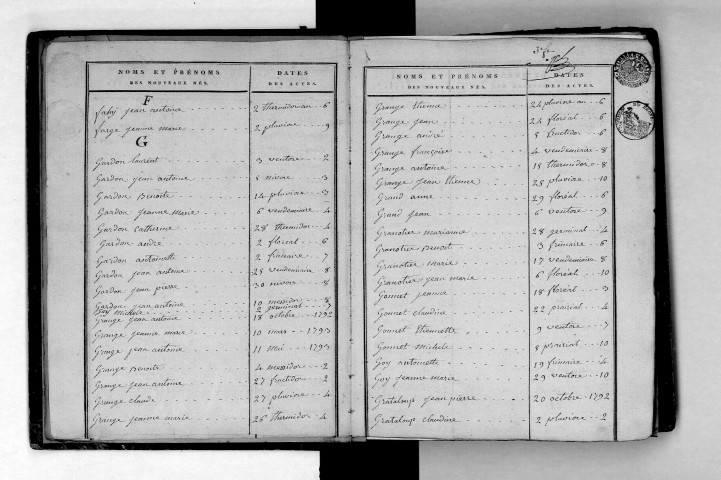 NOMS ET PRÉNOMS
DES NOUVEAUX NÉS.
DATES
DES ACTES.
F
faby jean antoine 2 thermidor an 6
farge jeanne marie 2 pluviose 9
G
Gardon laurent 3 ventose 2
Gardon jean antoine 8 nivose 3
Gardon Benoite 14 pluviose 3
Gardon jeanne marie 6 vendemiaire 4
Gardon catherine 28 thermidor 4
Gardon andré 2 floreal 6
Gardon antoinette 2 frimaire 7
Gardon jean antoine 28 vendemiaire 8
Gardon jean pierre 30 nivose 8
Gardon jean antoine 10 messidor 8
Goy michele 2 germinal 7
Grange jean antoine 18 octobre 1792
Grange jeanne marie 10 mars 1793
Grange jean antoine 11 mai 1793
Grange Benoite 4 messidor 2
Grange jean antoine 27 fructidor 2
Grange claude 27 pluviose 4
Grange jeanne marie 26 thermidor 4
NOMS ET PRÉNOMS
DES NOUVEAUX NÉS.
DATES
DES ACTES.
Grange Etienne 24 pluviose an 6
Grange jean 24 floréal 6
Grange andré 8 fructidor 6
Grange françoise 4 vendemiaire 8
Grange antoine 18 thermidor 8
Grange jean Etienne 28 pluviose 10
Grand anne 29 floréal 6
Grand jean 6 ventose 9
Granotier marianne 28 germinal 4
Granotier Benoit 3 frimaire 6
Granotier marie 17 vendemiaire 8
Granotier jean marie 6 floréal 10
Gonnet jeanne 18 floréal 3
Gonnet claudine 22 prairial 4
Gonnet Etiennette 9 ventose 7
Gonnet michele 8 prairial 10
Goy antoinette 19 frimaire 4
Goy jeanne marie 29 ventose 10
Grataloup jean pierre 20 octobre 1792
Grataloup claudine 2 pluviose 2